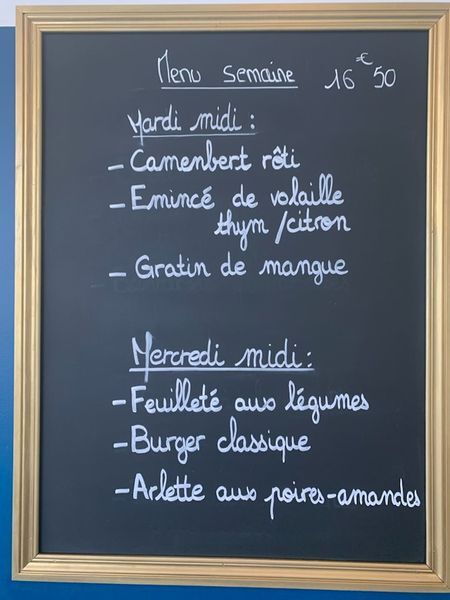 Menu semaine 16€50
Mardi midi :
- Camenbert rôti
- Emincé de volaille
thym / citron
- Gratin de mangue
Mercredi midi :
- Feuilleté aux légumes
- Burger classique
- Arlette aux poires-amandes